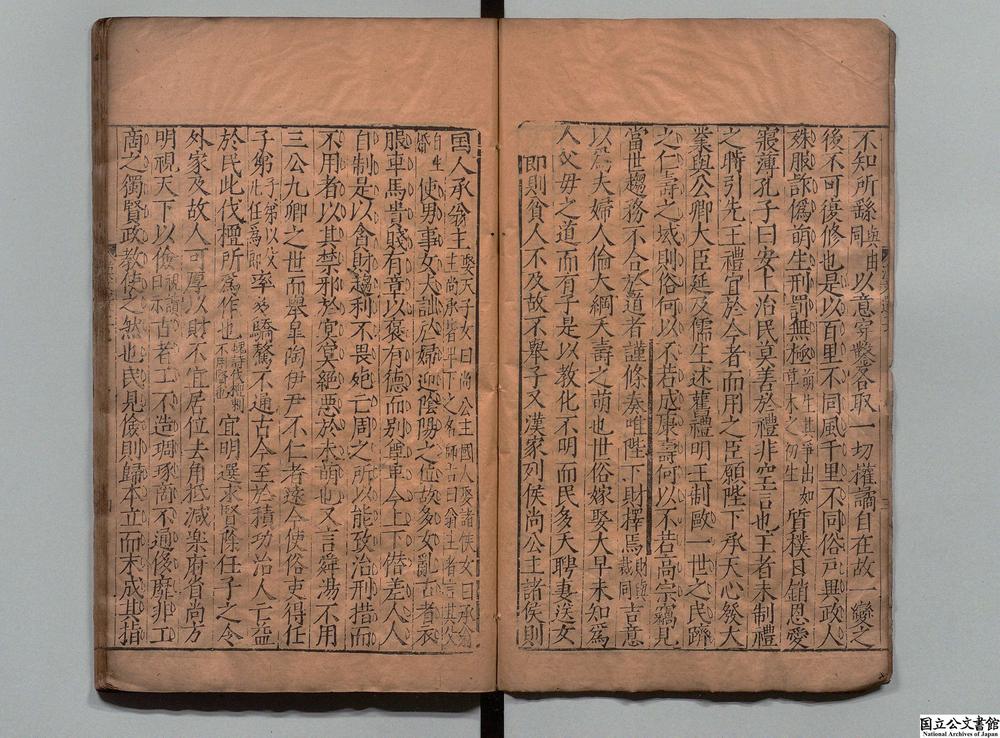 不知所繇與由同以意穿鑿各取一切權譎自在故一變之
後不可復修也是以百里不同風千里不同俗戸異政人
殊服詐僞萌生刑罰無極萌生其爭出如草木之初生質樸日銷恩愛
寖薄孔子曰安上治民莫善於禮非空言也王者未制禮
之時引先王禮宜於今者而用之臣願陛下承天心發大
業與公卿大臣延及儒生述舊禮明王制歐一世之民躋
之仁壽之域則俗何以不若成康壽何以不若高宗竊見
當世趨務不合於道者謹條奏唯陛下財擇焉財與裁同吉意
以為夫婦人倫大綱夭壽之萌也世俗嫁娶大早未知為
人父母之道而有子是以教化不明而民多夭聘妻送女
即則貧人不及故不舉子又漢家列侯尚公主諸侯則
国人承翁主娶天子女曰尚公主國人娶諸侯女曰承翁主尚承皆卑下之名師古曰翁主者言其父
自主婚使男事女夫詘於婦逆陰陽之位故多女亂古者衣
服車馬貴賤有章以褒有德而别尊卑今上下僭差人人
自制是以貪財趨利不畏死亡周之所以能致治刑措而
不用者以其禁邪於冥冥絶惡於未萌也又言舜湯不用
三公九卿之世而舉皐陶伊尹不仁者遠今使俗吏得任
子弟子弟以父任為郎率多驕驁不通古今至於積功治人亡益
於民此伐檀所為作也魏詩伐檀刺不用賢也宜明選求賢除任子之令
外家及故人可厚以財不宜居位去角抵減樂府省尚方
明視天下以儉視讀曰示古者工不造琱琢商不通侈靡非工
商之獨賢政教使之然也民見儉則歸本立而末成其指
国立公文書館
National Archives of Japan